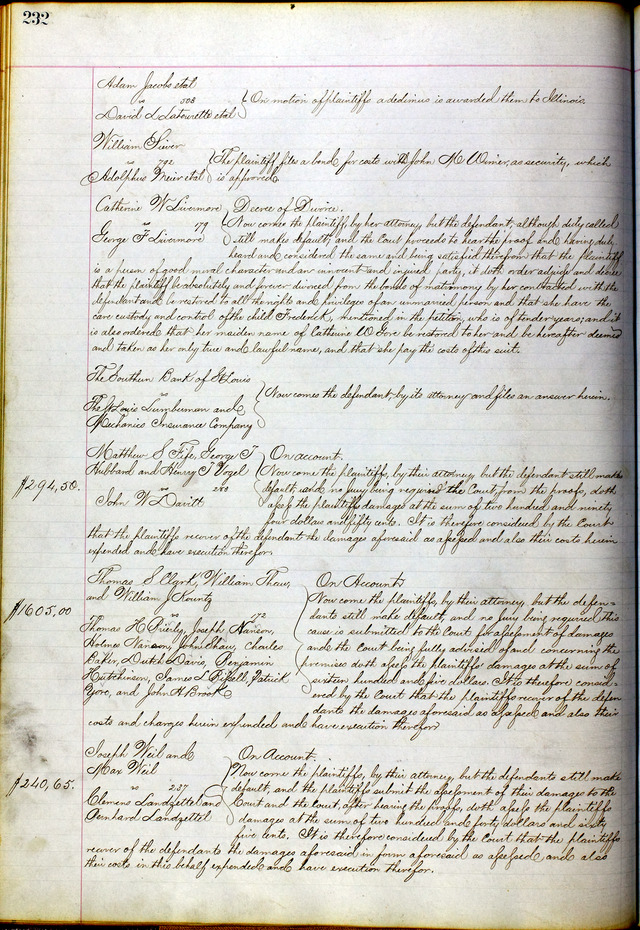 232
Adam Jacobs et al
vs 308
David L Latourette et al
On motion of plaintiffs a dedimus is awarded them to Illinois.
William Siver
vs 792
Adolphus Meier et al
The plaintiff files a bond for costs with John M Werner, as security, which
is approved.
Catherine W Livermore
vs 179
George F Livermore
Decree of Divorce.
Now comes the plaintiff, by her attorney but the defendant, although duly called
still makes default, and the Court proceeds to hear the proof and having duly
heard and considered the same and being satisfied therefrom that the plaintiff
is a person of good moral character and an innocent and injured party, it doth order adjudge and decree
that the plaintiff be absolutely and forever divorced from the bonds of matrimony by her contracted with the
defendant and be restored to all the rights and privileges of an unmarried person and that she have the
care custody and control of the child Frederick, mentioned in the petition, who is of tender years; and it
is also ordered that her maiden name of Catherine W Gere be restored to her and be hereafter deemed
and taken as her only true and lawful name, and that she pay the costs of this suit.
The Southern Bank of St Louis
vs
The St Louis Lumbermen and
Mechanics Insurance Company
Now comes the defendant, by its attorney and files an answer herein.
Matthew S Fife, George T
Hubbard and Henry T Vogel
vs 280
John W Davitt
$294,50.
On account.
Now come the plaintiffs, by their attorney but the defendant still makes
default, and no jury being required the Court, from the proofs, doth
assess the plaintiffs damages at the sum of two hundred and ninety
four dollars and fifty cents. It is therefore considered by the Court
that the plaintiffs recover of the defendant the damages aforesaid as assessed and also their costs herein
expended and have execution therefor.
Thomas S Clark, William Thaw,
and William J Kountz
vs 172
Thomas H Brierly, Joseph Nanson,
Holmes Nanson, John Shaw, Charles
Baker, Dutch Davis, Benjamin
Hutchinson, James L Bissell, Patrick
Yore, and John H Brook
$1605,00
On Account.
Now come the plaintiffs, by their attorney, but the defen-
dants still make default, and no jury being required this
cause is submitted to the Court for assessment of damages
and the Court being fully advised of and concerning the
premises doth assess the plaintiffs' damages at the sum of
sixteen hundred and five dollars. It is therefore consid-
ered by the Court that the plaintiffs recover of the defen
dants the damages aforesaid as assessed and also their
costs and charges herein expended and have execution therefor
Joseph Weil and
Max Weil
vs 237
Clemens Landzettel and
Bernhard Landzettel
$240,65.
On Account.
Now come the plaintiffs, by their attorney, but the defendants still make
default, and the plaintiffs submit the assessment of their damages to the
Court and the Court, after hearing the proofs, doth assess the plaintiffs
damages at the sum of two hundred and forty dollars and sixty
five cents. It is therefore considered by the Court that the plaintiffs
recover of the defendants the damages aforesaid in form aforesaid as assessed and also
their costs in this behalf expended and have execution therefor.